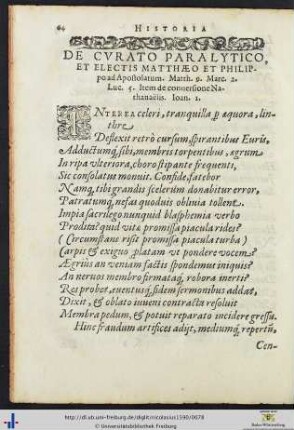 64 HISTORIA
DE CVRATO PARALYTICO,
ET ELECTIS MATTHÆO ET PHILIP-
po ad Apostolatum. Matth. 9. Marc. 2.
Luc. 5. Item de conuersione Na-
thanaëlis. Ioan. 1.
INTEREA celeri, tranquilla ꝑ æquora, lin-
thre
Deflexit retrò cursum, spirantibus Euris,
Adductumq́; sibi, membris torpentibus, ægrum
In ripa vlteriora, choro stipante frequenti,
Sic consolatus monuit. Confide, fatebor
Namq́; tibi grandis scelerum donabitur error,
Patratumq́; nefas quoduis obliuia tollent.
Impia sacrilego nunquid blasphemia verbo
Prodiit? quid vita promissa piacula rides?
(Circumstans risit promissa piacula turba)
Carpis & exiguo platam vt pondere vocem?
Ægrius an veniam factis spondemus iniquis?
An neruos membro firmataq́; robora inerti?
Res probet, euentusq́; fidem sermonibus addat,
Dixit, & oblato iuueni contracta resoluit
Membra pedum, & potuit reparato incidere gressu.
Hinc fraudum artifices adijt, mediumq́; repertũ,
Cen-
http://dl.ub.uni-freiburg.de/diglit/nicolosius1590/0678
© Universitätsbibliothek Freiburg
Baden-Württemberg